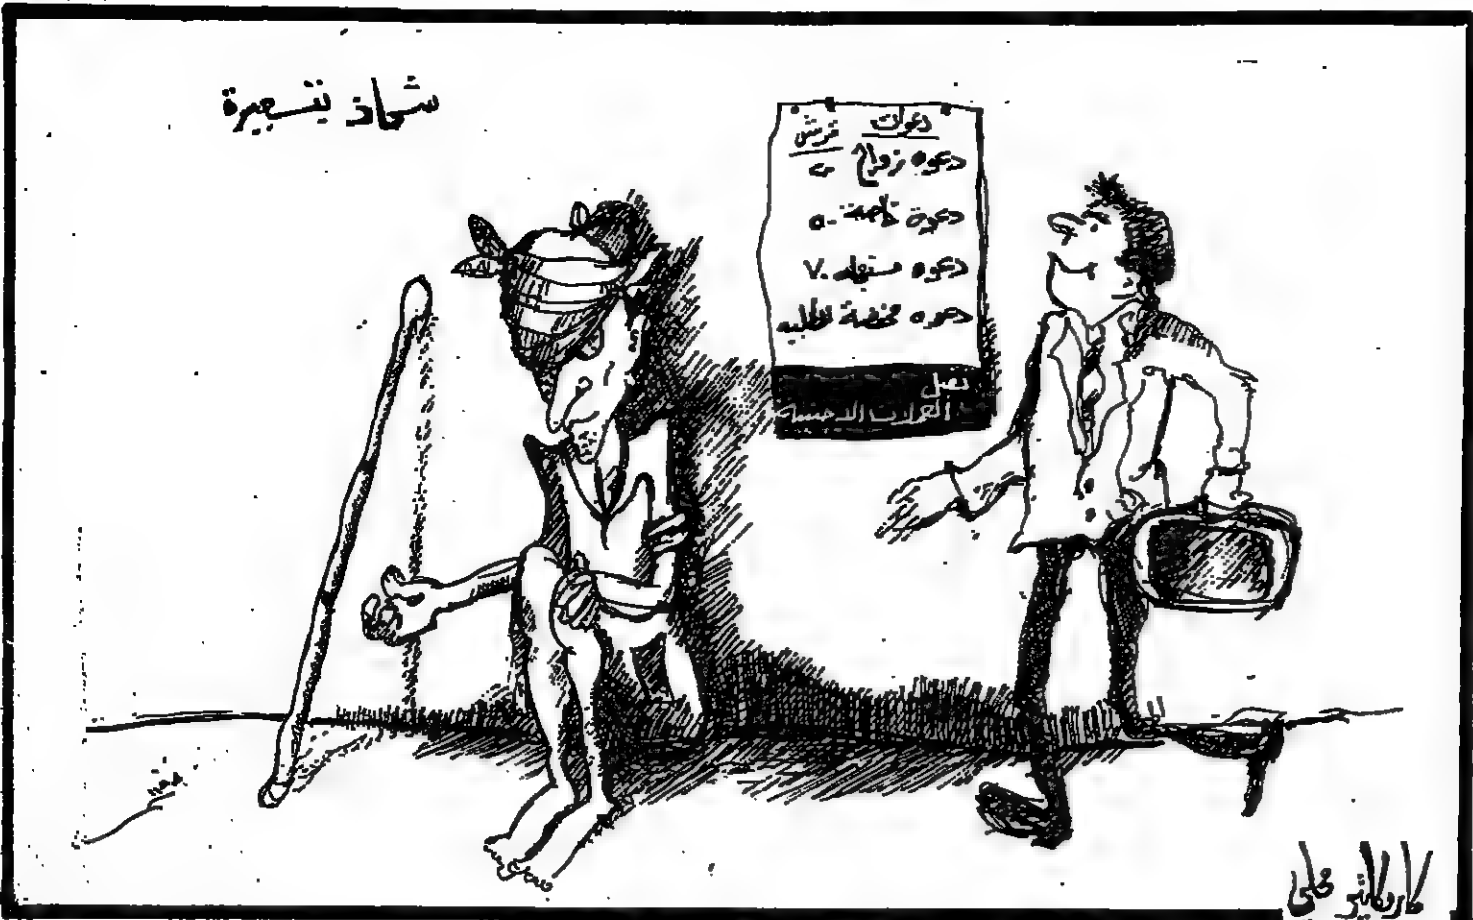 شحاذ بتسعيرة
دعوات قرش
دعوه زواج ٢٠
دعوة ناجحة ٥٠
دعوه مستعجله ٧٠
دعوه مخفضة للطلبه
نقبل
العملات الاجنبيه
كاريكاتير